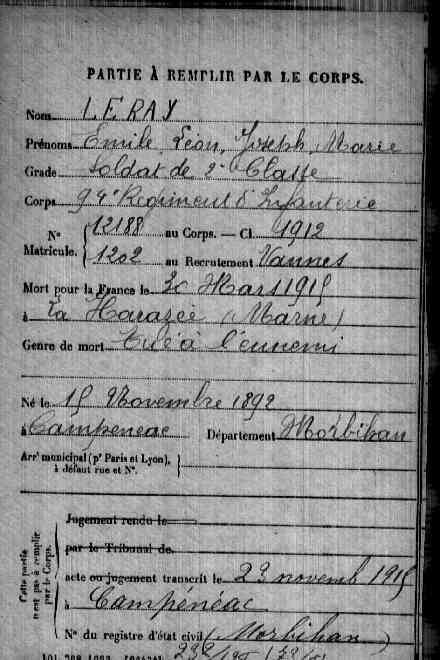 PARTIE À REMPLIR PAR LE CORPS.
Nom LERAY
Prénoms Emile, Léon, Joseph, Marie
Grade Soldat de 2e Classe
Corps 94e Régiment d'Infanterie
N° 12188 au Corps. — Cl. 1912
Matricule. 1202 au Recrutement Vannes
Mort pour la France le 30 Mars 1915
à La Harazée (Marne)
Genre de mort Tué à l'ennemi
Né le 15 Novembre 1892
à Campeneac Département Morbihan
Arrt municipal (pr Paris et Lyon),
à défaut rue et N°.
Cette partie
n'est pas à remplir
par le Corps.
Jugement rendu le
par le Tribunal de
acte ou jugement transcrit le 23 novemb 1915
à Campénéac
N° du registre d'état civil (Morbihan)